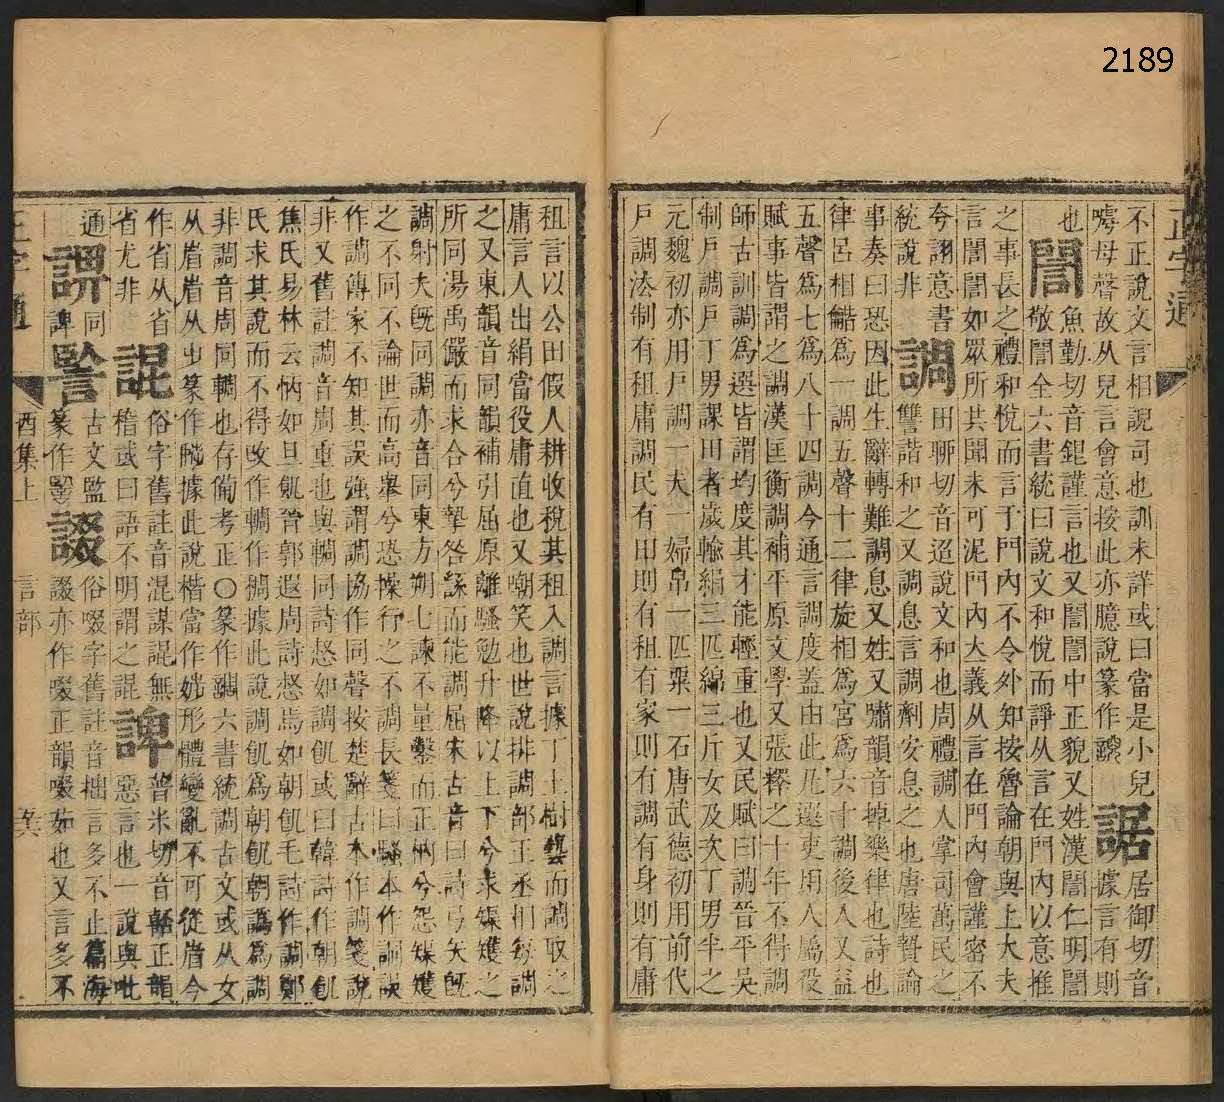 2189
正字通
不正說文言相說司也訓未詳或曰當是小兒 䛯 居御切音
嘮母聲故从兒言會意按此亦臆說篆作 據言有則
也 誾 魚勤切音銀謹言也又誾誾中正貌又姓漢誾仁明誾
敬誾全六書統曰說文和悅而諍从言在門內以意推
之事長之禮和悅而言于門內不令外知按魯論朝與上大夫
言誾誾如眾所共聞未可泥門內大義从言在門內會謹密不
夸詡意書
統說非 調 田聊切音迢說文和也周禮調人掌司萬民之
讐諧和之又調息言調劑安息之也唐陸贄論
事奏曰恐因此生辭轉難調息又姓又嘯韻音掉樂律也詩也
律呂相龤爲一調五聲十二律旋相爲宮爲六十調後人又益
五聲爲七爲八十四調今通言調度蓋由此凡選吏用人屬役
賦事皆謂之調漢匡衡調補平原文學又張釋之十年不得調
師古訓調爲選皆謂均度其才能輕重也又民賦曰調晉平吳
制戸調戸丁男課田者歲輸絹三匹綿三斤女及次丁男半之
元魏初亦用戸調一夫一婦帛一匹粟一石唐武德初用前代
戸調法制有租庸調民有田則有租有家則有調有身則有庸
租言以公田假人耕收稅其租入調言據丁土樹藝而調取之
庸言人出絹當役庸直也又嘲笑也世說排調部王丞相每調
之又東韻音同韻補引屈原離騷勉升降以上下兮求榘矱之
所同湯禹儼而求合兮摯咎繇而能調屈宋古音曰詩弓矢旣
調射夫旣同調亦音同東方朔七諫不量鑿而正枘兮恐榘矱
之不同不論世而高舉兮恐操行之不調長箋曰騷本作詷誤
作調傳家不知其誤強謂調協作同聲按楚辭古本作調箋說
非又舊註調音周重也與輖同詩惄如調飢或曰韓詩作朝飢
焦氏易林云㤋如旦飢晉郭遐周詩惄焉如朝飢毛詩作調鄭
氏求其說而不得攺作輖作椆據此說調飢爲朝飢朝譌爲調
非調音周同輖也存備考正○篆作調六書統調古文或从女
从㫺㫺从㞢篆作 據此說楷當作 形體變亂不可從㫺今
作省从省
省尤非 諎 俗字舊註音混謀諎無
㯭或曰語不明謂之諎 諀 普米切音 正韻
惡言也一說與吡
通 諀同諀 䜭 古文監
篆作 諁 俗啜字舊註音拙言多不止篇海
諁亦作啜正韻啜茹也又言多不
正字通 酉集上 言部